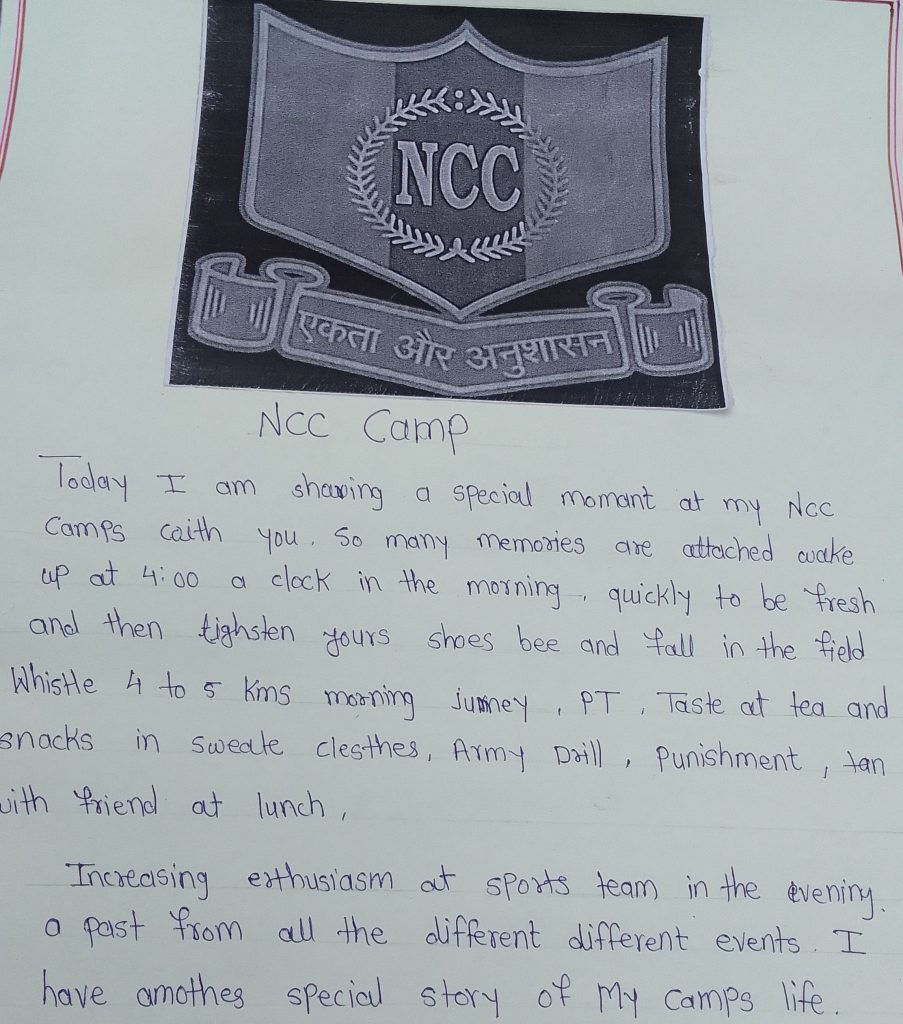 NCC
एकता और अनुशासन
NCC Camp
Today I am sharing a special momant at my NCC
Camps caith you. So many memories are attached wake
up at 4:00 a clock in the morning, quickly to be fresh
and then tighsten yours shoes bee and fall in the field
Whistle 4 to 5 Kms morning jurney, PT, Taste at tea and
snacks in sweate clesthes, Army Drill, Punishment, tan
with friend at lunch,
Increasing esthusiasm at sports team in the evening.
a past from all the different different events. I
have amothes special story of My camps life.